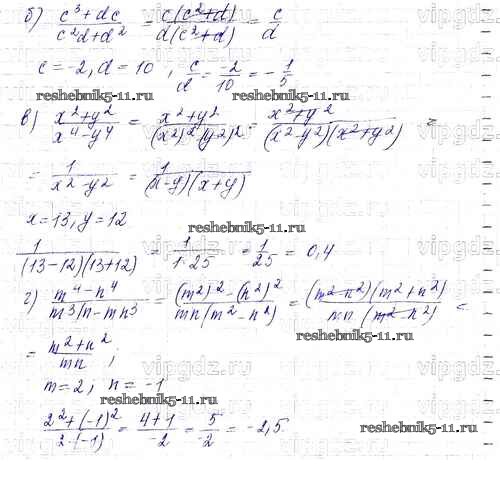 б) c³ + dc / c²d + d² = c(c² + d) / d(c² + d) = c / d
c = -2, d = 10 , c / d = -2 / 10 = - 1 / 5
reshebnik5-11.ru reshebnik5-11.ru
в) x² + y² / x⁴ - y⁴ = x² + y² / (x²)² - (y²)² = x² + y² / (x² - y²)(x² + y²) =
= 1 / x² - y² = 1 / (x - y)(x + y)
x = 13, y = 12
reshebnik5-11.ru
1 / (13 - 12)(13 + 12) = 1 / 1·25 = 1 / 25 = 0,4
г) m⁴ - n⁴ / m³n - mn³ = (m²)² - (n²)² / mn(m² - n²) = (m² - n²)(m² + n²) / mn (m² - n²) =
= m² + n² / mn ;
m = 2, n = -1
reshebnik5-11.ru
2² + (-1)² / 2·(-1) = 4 + 1 / -2 = 5 / -2 = -2,5
reshebnik5-11.ru
vipgdz.ru